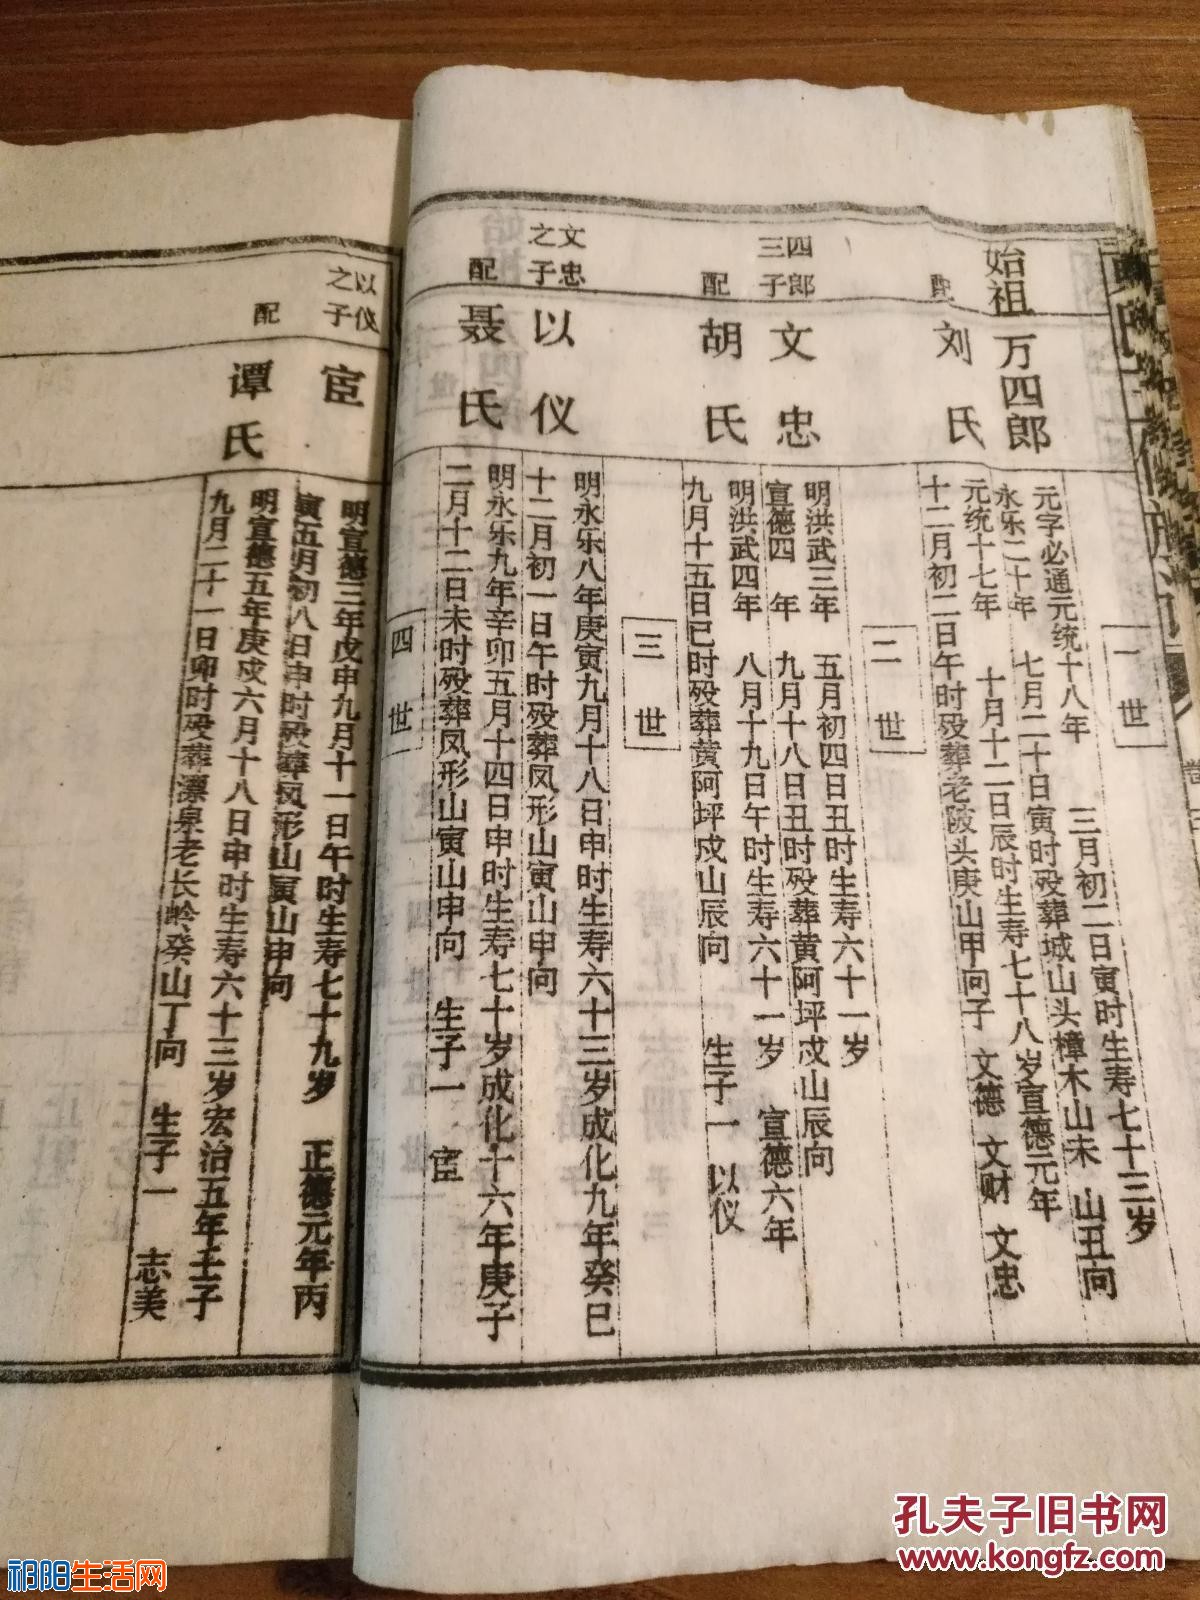 一世
始祖万四郎
元字必通元统十八年 三月初二日寅时生寿七十三岁
永乐二十年 七月二十日寅时殁葬城山头樟木山未 山丑向
配刘氏
元统十七年 十月十二日辰时生寿七十八岁宣德元年
十二月初二日午时殁葬老陂头庚山甲向子 文德 文财 文忠
二世
四郎三子
文忠
明洪武三年 五月初四日丑时生寿六十一岁
宣德四 年 九月十八日丑时殁葬黄阿坪戍山辰向
配胡氏
明洪武四年 八月十九日午时生寿六十一岁 宣德六年
九月十五日巳时殁葬黄阿坪戍山辰向 生子一 以仪
三世
文忠之子
以仪
明永乐八年庚寅九月十八日申时生寿六十三岁成化九年癸巳
十二月初一日午时殁葬凤形山寅山申向
配聂氏
明永乐九年辛卯五月十四日申时生寿七十岁成化十六年庚子
二月十二日未时殁葬凤形山寅山申向 生子一 宦
四世
以仪之子
宦
明宣德三年戊申九月十一日午时生寿七十九岁 正德元年丙
寅五月初八日申时殁葬凤形山寅山申向
配谭氏
明宣德五年庚戍六月十八日申时生寿六十三岁宏治五年壬子
九月二十一日卯时殁葬漂泉老长岭癸山丁向 生子一 志美
孔夫子旧书网
www.kongfz.com
祁阳生活网